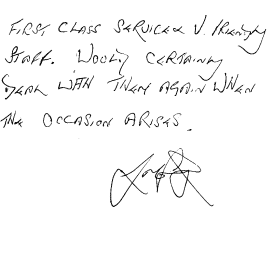 FIRST CLASS SERVICE & V. FRIENDLY
STAFF. WOULD CERTAINLY
DEAL WITH THEM AGAIN WHEN
THE OCCASION ARISES.